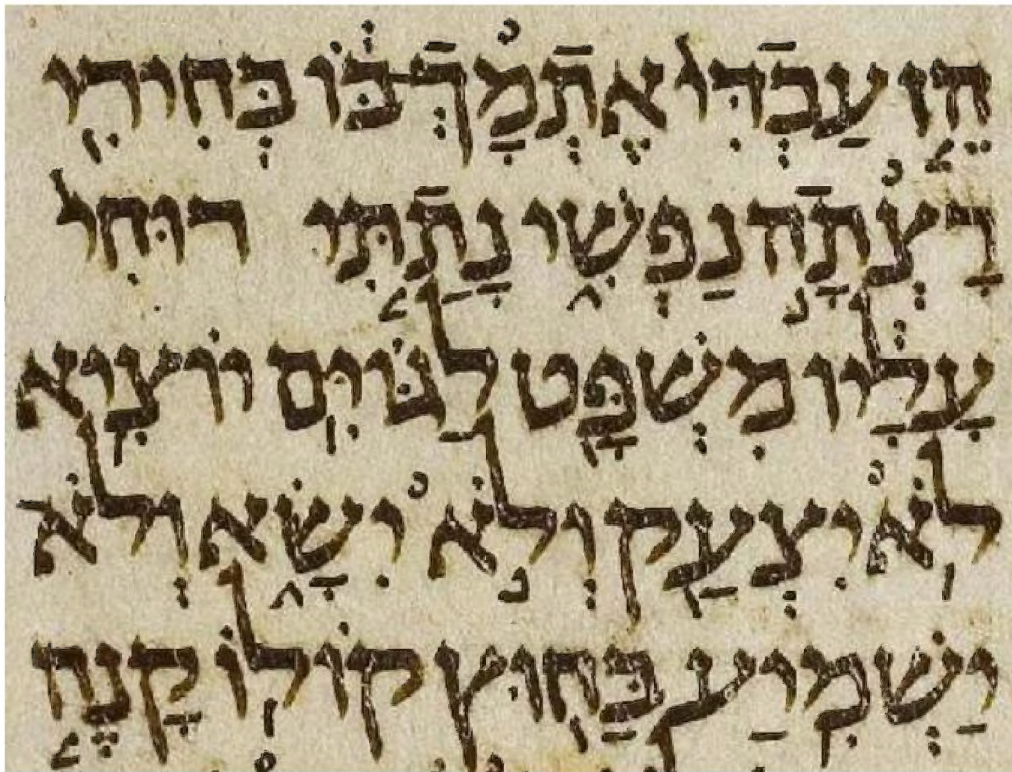 הֵ֤ן עַבְדִּי֙ אֶתְמָךְ־בּ֔וֹ בְּחִירִ֖י
רָצְתָ֣ה נַפְשִׁ֑י נָתַ֤תִּי רוּחִי֙
עָלָ֔יו מִשְׁפָּ֖ט לַגּוֹיִ֥ם יוֹצִ֥יא
לֹ֥א יִצְעַ֖ק וְלֹ֣א יִשָּׂ֑א וְלֹא
יַשְׁמִ֥יעַ בַּח֖וּץ קוֹלֽוֹ קָנֶ֤ה